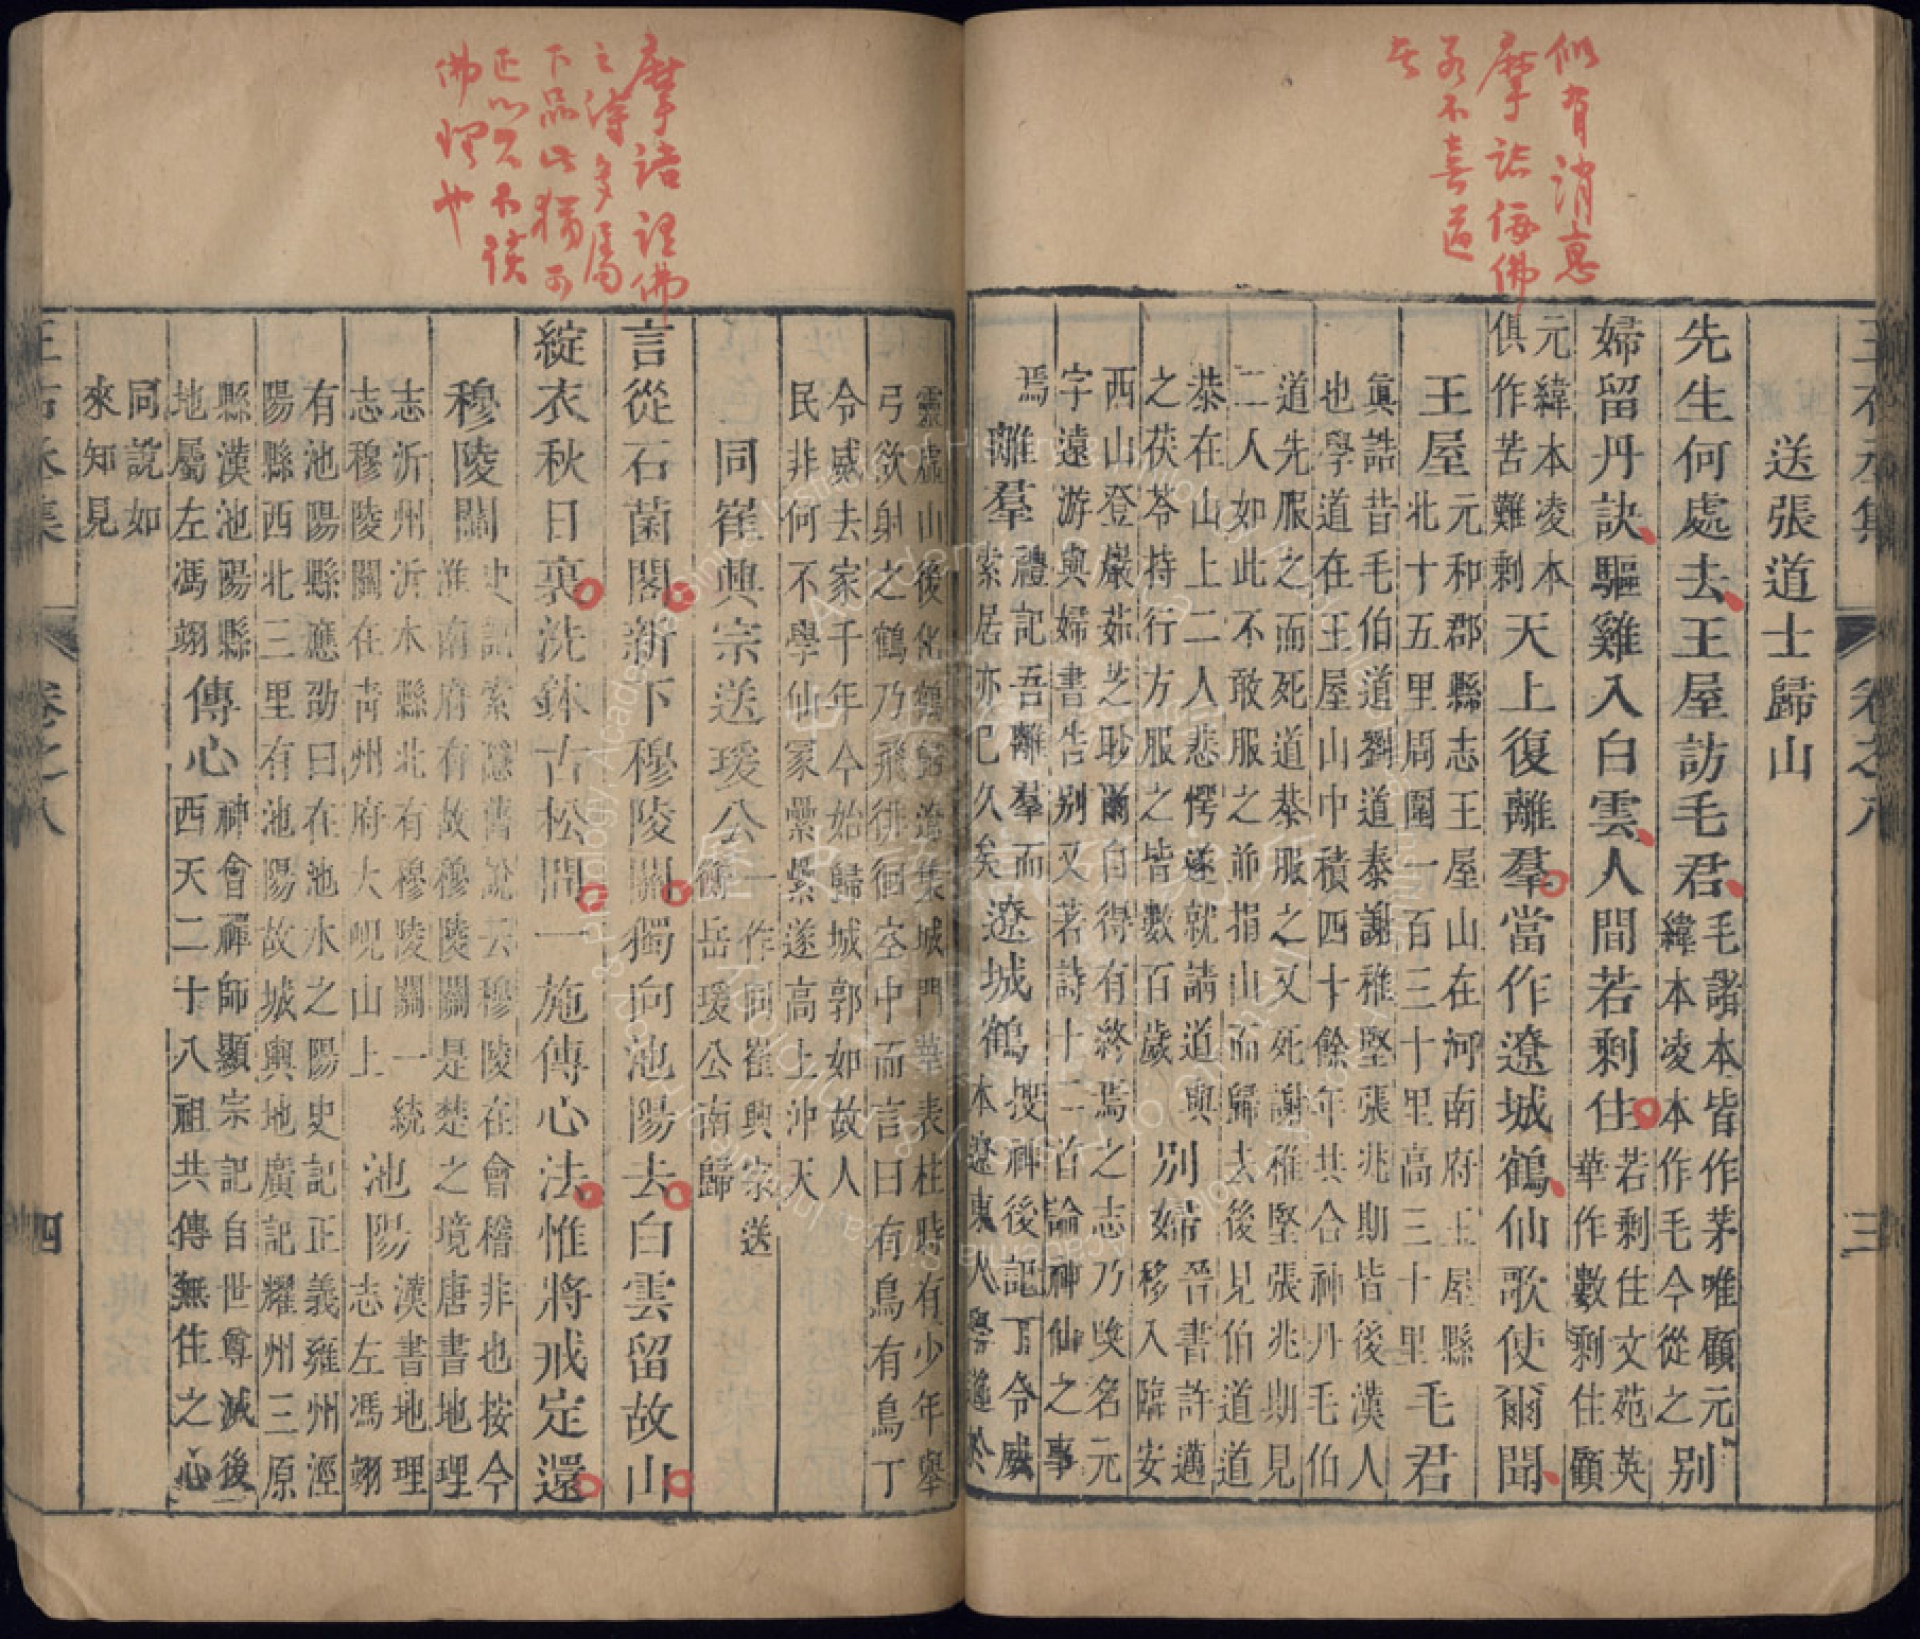 似有消息
摩詰佞佛
若不喜道
者
王右丞集
卷之八
三
送張道士歸山
先生何處去王屋訪毛君毛諸本皆作茅唯顧元
緯本凌本作毛今從之別
婦留丹訣驅雞入白雲人間若剩住若剩住文苑英
華作數剩住顧
元緯本凌本
俱作苦難剩天上復離羣當作遼城鶴仙歌使爾聞
王屋元和郡縣志王屋山在河南府王屋縣
北十五里周圍一百三十里高三十里毛君
眞誥昔毛伯道劉道泰謝稚堅張兆期皆後漢人
也學道在王屋山中積四十餘年共合神丹毛伯
道先服之而死道恭服之又死謝稚堅張兆期見
二人如此不敢服之並指山而歸去後見伯道道
恭在山上二人悲愕遂就請道與
之茯苓持行方服之皆數百歲別婦晉書許邁
移入臨安
西山登巖茹芝眇爾自得有終焉之志乃改名元
字遠游與婦書告別又著詩十二首論神仙之事
焉離羣禮記吾離羣而
索居亦已久矣遼城鶴搜神後記丁令威
本遼東人學道於
靈虛山後化鶴歸遼集城門華表柱時有少年舉
弓欲射之鶴乃飛徘徊空中而言曰有鳥有鳥丁
令威去家千年今始歸城郭如故人
民非何不學仙冢纍纍遂高上沖天
同崔興宗送瑗公一作同崔興宗送
衡岳瑗公南歸
言從石菌閣新下穆陵關獨向池陽去白雲留故山
綻衣秋日裏洗鉢古松間一施傳心法惟將戒定還
穆陵關史記索隱舊說云穆陵在會稽非也按今
淮南府有故穆陵關是楚之境唐書地理
志沂州沂水縣北有穆陵關一統
志穆陵關在青州府大峴山上池陽漢書地理
志左馮翊
有池陽縣應劭曰在池水之陽史記正義雍州涇
陽縣西北三里有池陽故城輿地廣記耀州三原
縣漢池陽縣
地屬左馮翊傳心神會禪師顯宗記自世尊滅後
西天二十八祖共傳無住之心
同說如
來知見
王右丞集
卷之八
四
摩詰詔佛
之詩多屬
下品此獨可
正以其不談
佛理也